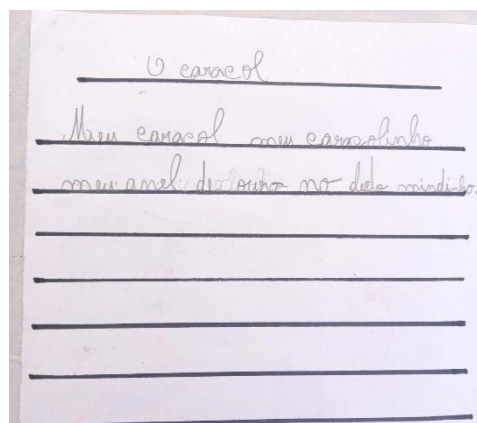 O caracol
Meu caracol meu caracolinho
meu anel de ouro no dedo mindinho.